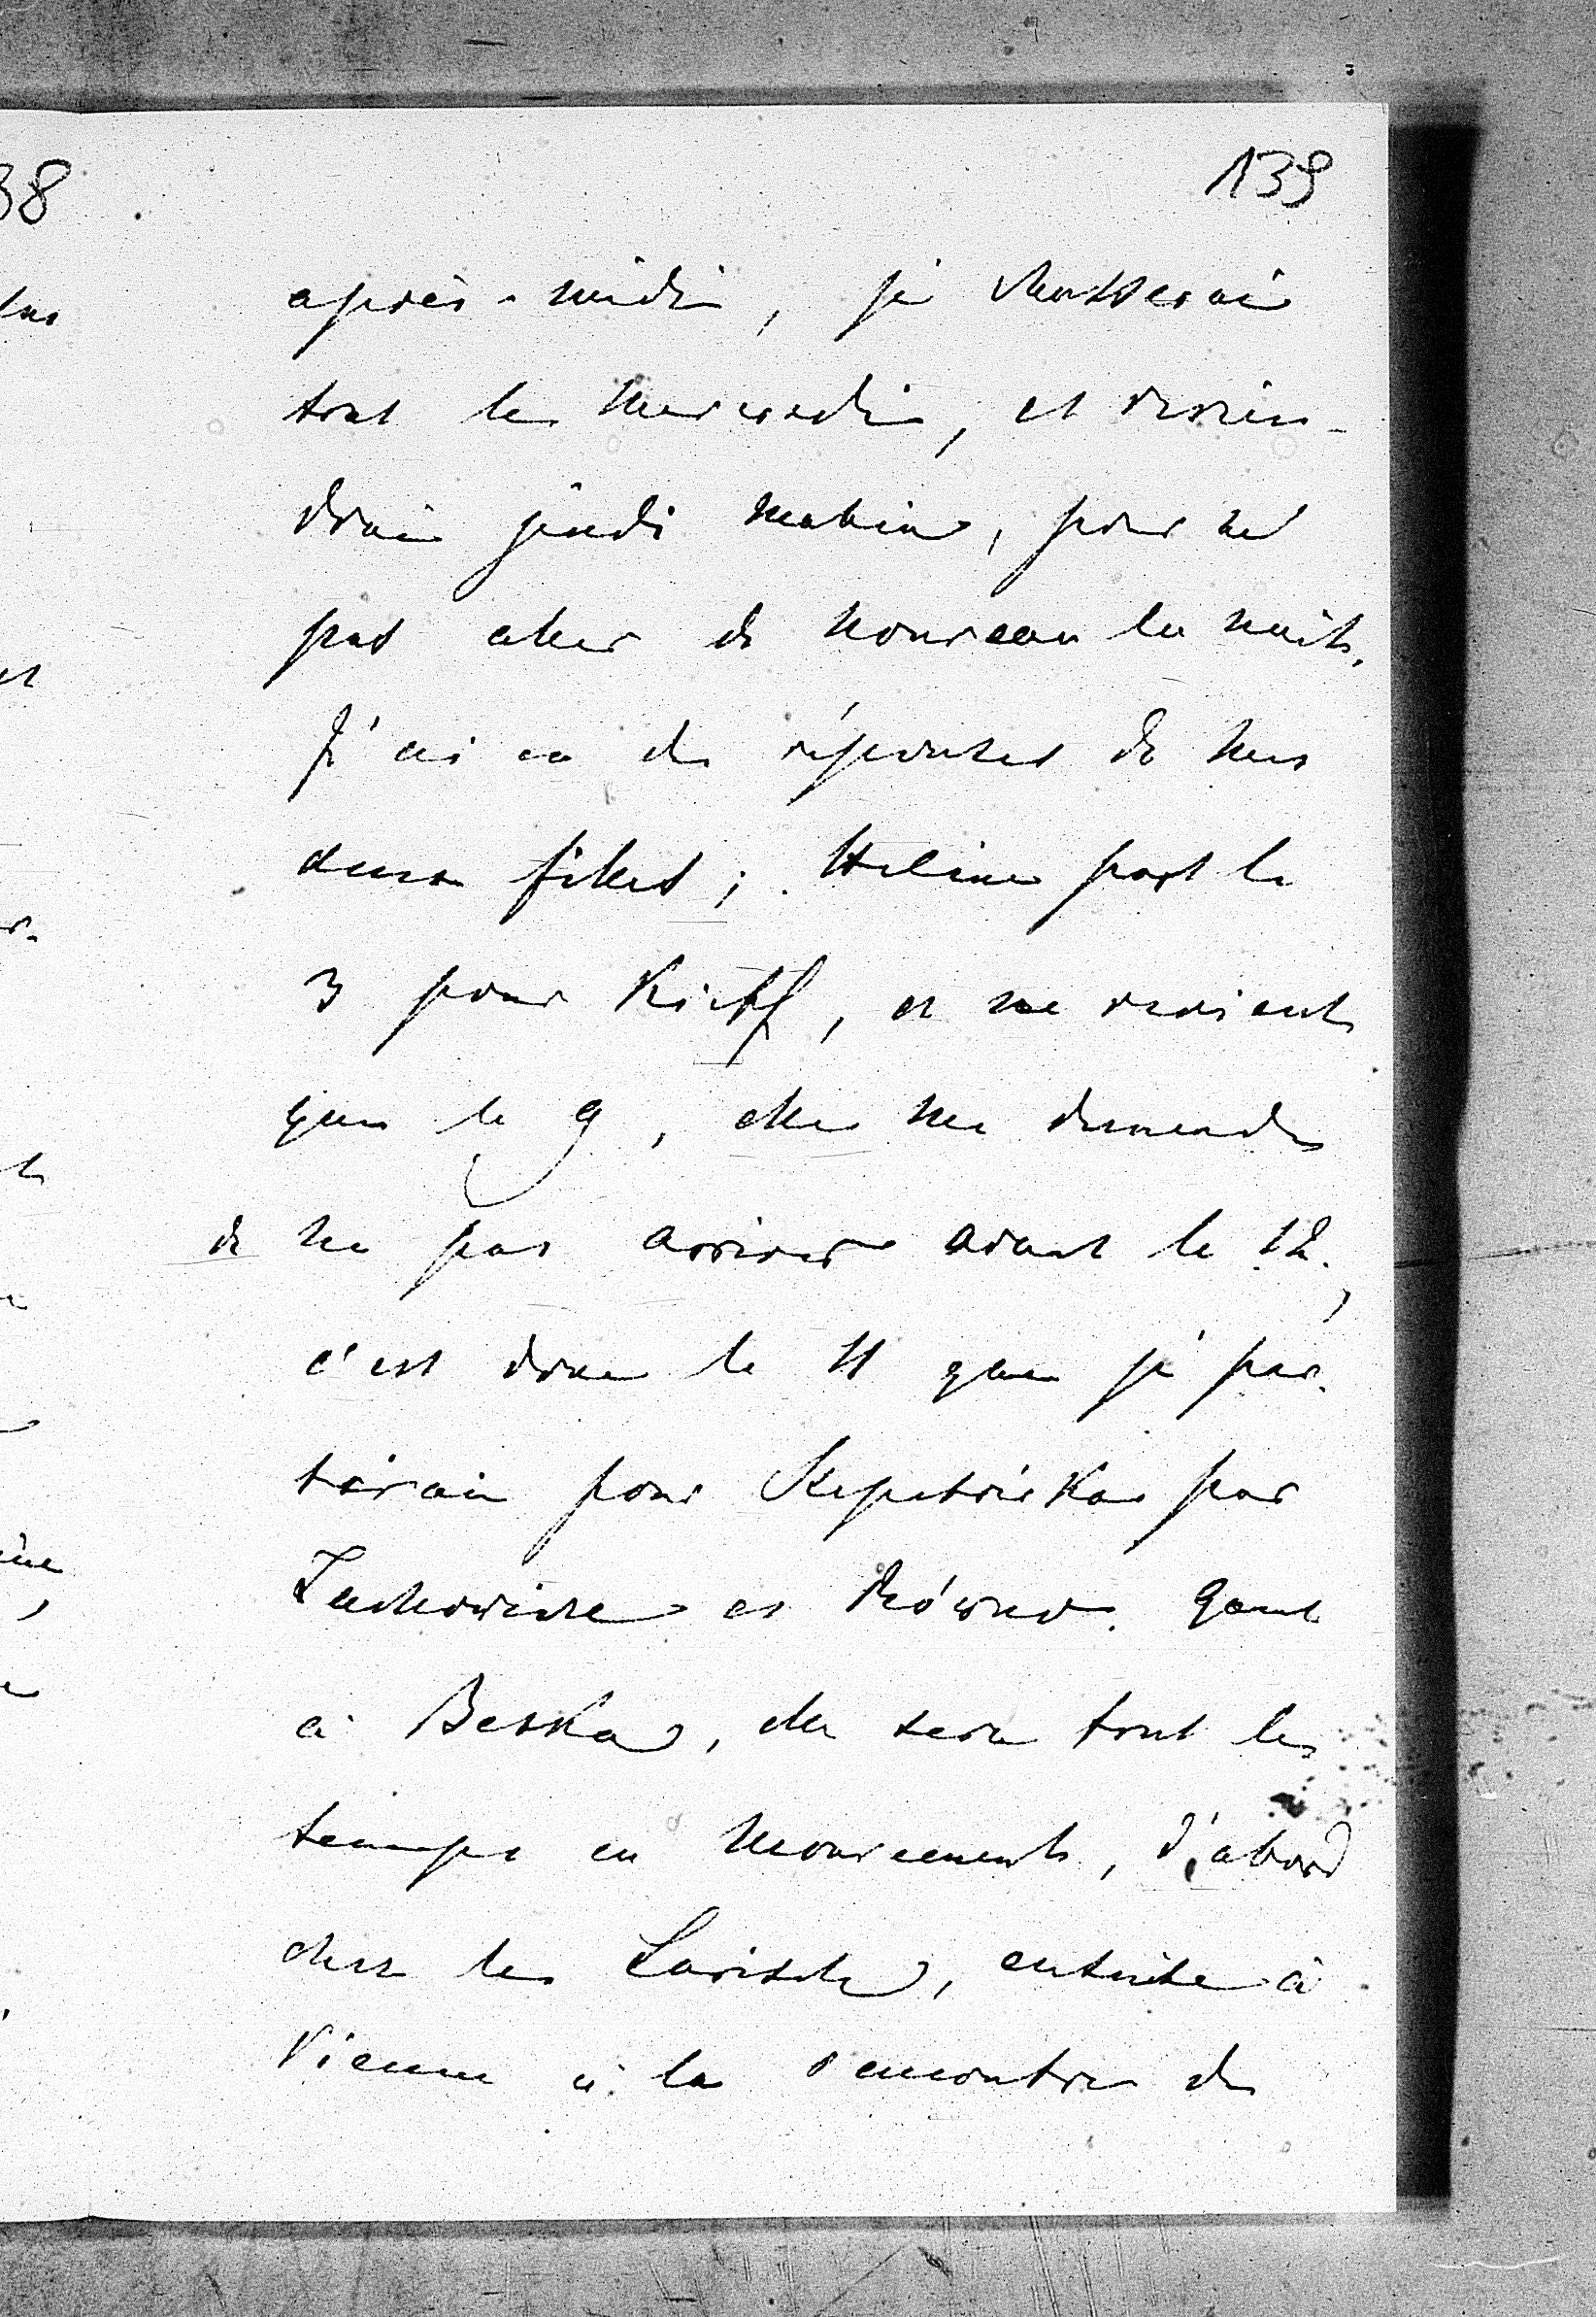 139
après-midi, je chasserai
tout le mercredi, et revien-
drai jeudi matin, pour ne
pas aller de nouveau la nuit.
J'ai eu des réponses de mes
deux filles; Hélène part le
3 pour Kieff, et ne revient
que le 9, elle me demande
de ne pas arriver avant le 12,
c'est donc le 11 que je par-
tirai pour Szepetówka par
et Równo. Quant
à Betka, elle sera tout le
temps en mouvement, d'abord
chez les Larisch, ensuite à
Vienne à la rencontre de